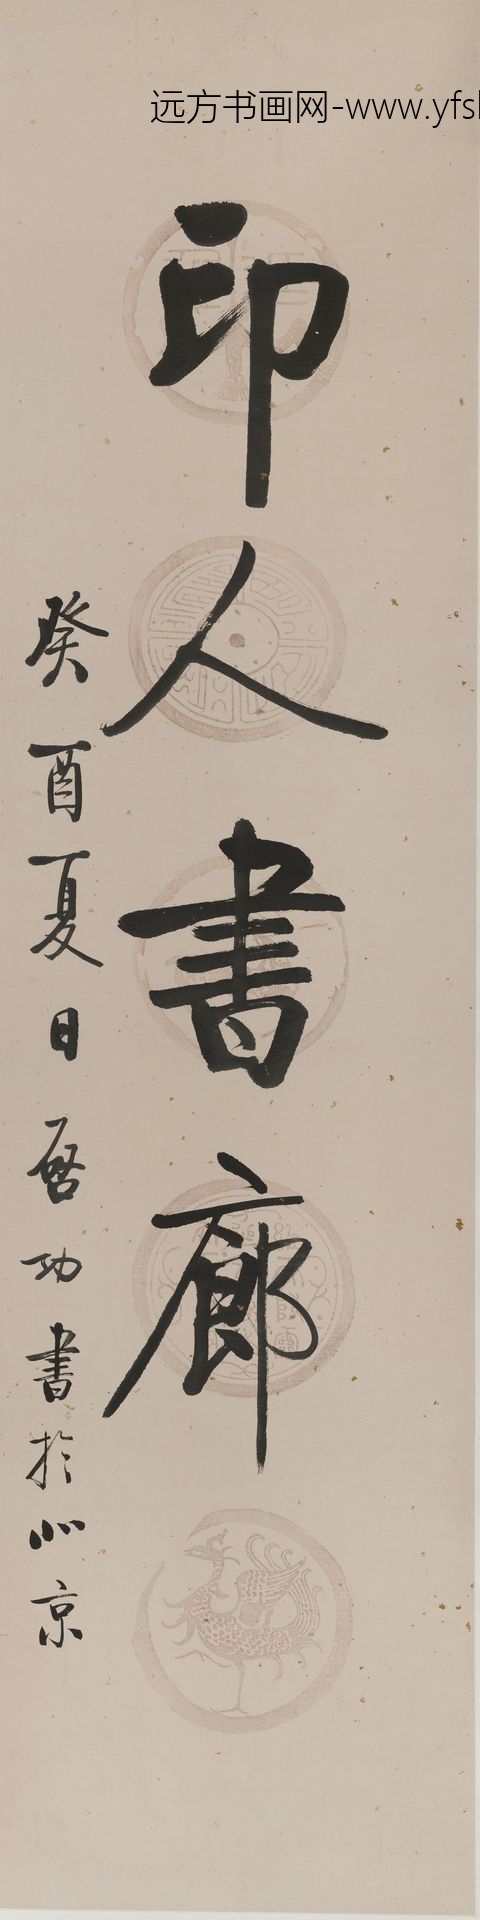 远方书画网-www.yfsh
印人書廊
癸酉夏日启功書於北京